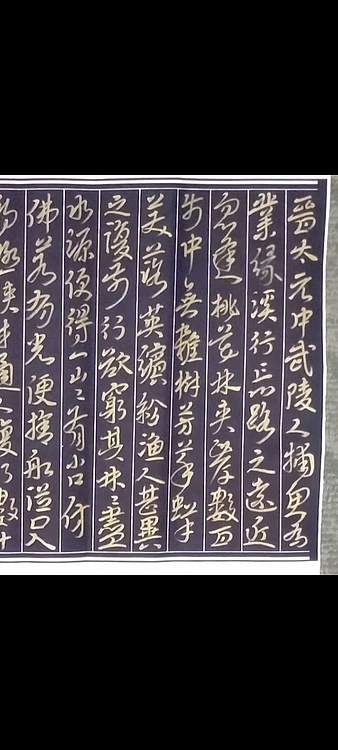 晉太元中武陵人捕魚為
業緣溪行忘路之遠近
忽逢桃花林夾岸數百
步中無雜樹芳草鮮
美落英繽紛漁人甚異
之復前行欲窮其林〻盡
水源便得一山〻有小口仿
佛若有光便捨船從口入
初極狹才通人復行數十